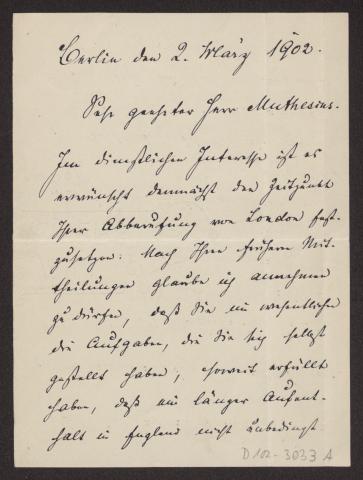 Berlin den 2. März 1902.
Sehr geehrter Herr Muthesius.
Im dienstlichen Interesse ist es
erwünscht demnächst den Zeitpunkt
Ihrer Abberufung von London fest-
zusetzen. Nach Ihren frühern Mit-
theilungen glaube ich annehmen
zu dürfen, daß Sie im wesentlichen
die Aufgaben, die Sie sich selbst
gestellt haben, soweit erfüllt
haben, daß ein länger Aufent-
halt in England nicht unbedingt
D 102-3033 A